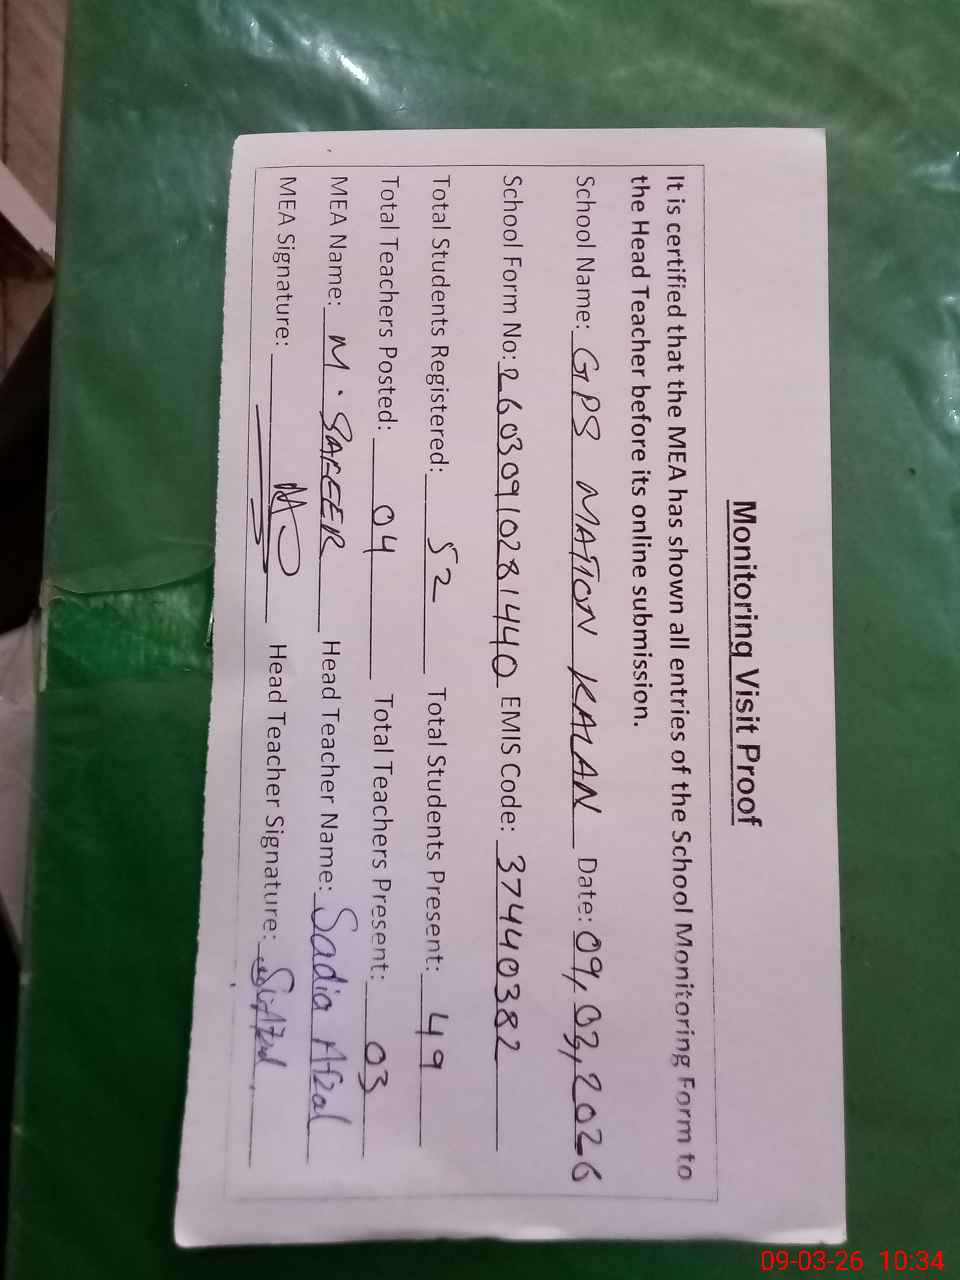 Monitoring Visit Proof
It is certified that the MEA has shown all entries of the School Monitoring Form to
the Head Teacher before its online submission.
School Name: GPS MATION KALAN Date: 09,03,2026
School Form No: 26030910281440 EMIS Code: 37440382
Total Students Registered: 52 Total Students Present: 49
Total Teachers Posted: 04 Total Teachers Present: 03
MEA Name: M. SAFEER Head Teacher Name: Sadia Afzal
MEA Signature: Head Teacher Signature: S.Afzal
09-03-26 10:34